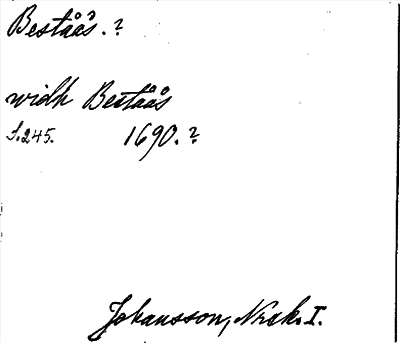 Beståås. ?
widh Beståås
S. 245. 1690. ?
Johansson, Nrsk. I.